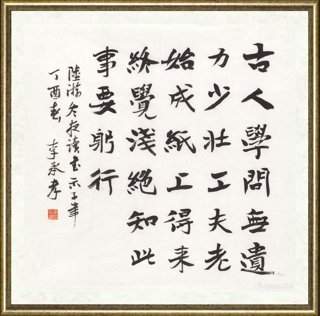 古人學問無遺
力少壯工夫老
始成紙上得来
終覺淺絕知此
事要躬行
陸游冬夜讀書示子聿
丁酉春 李承孝